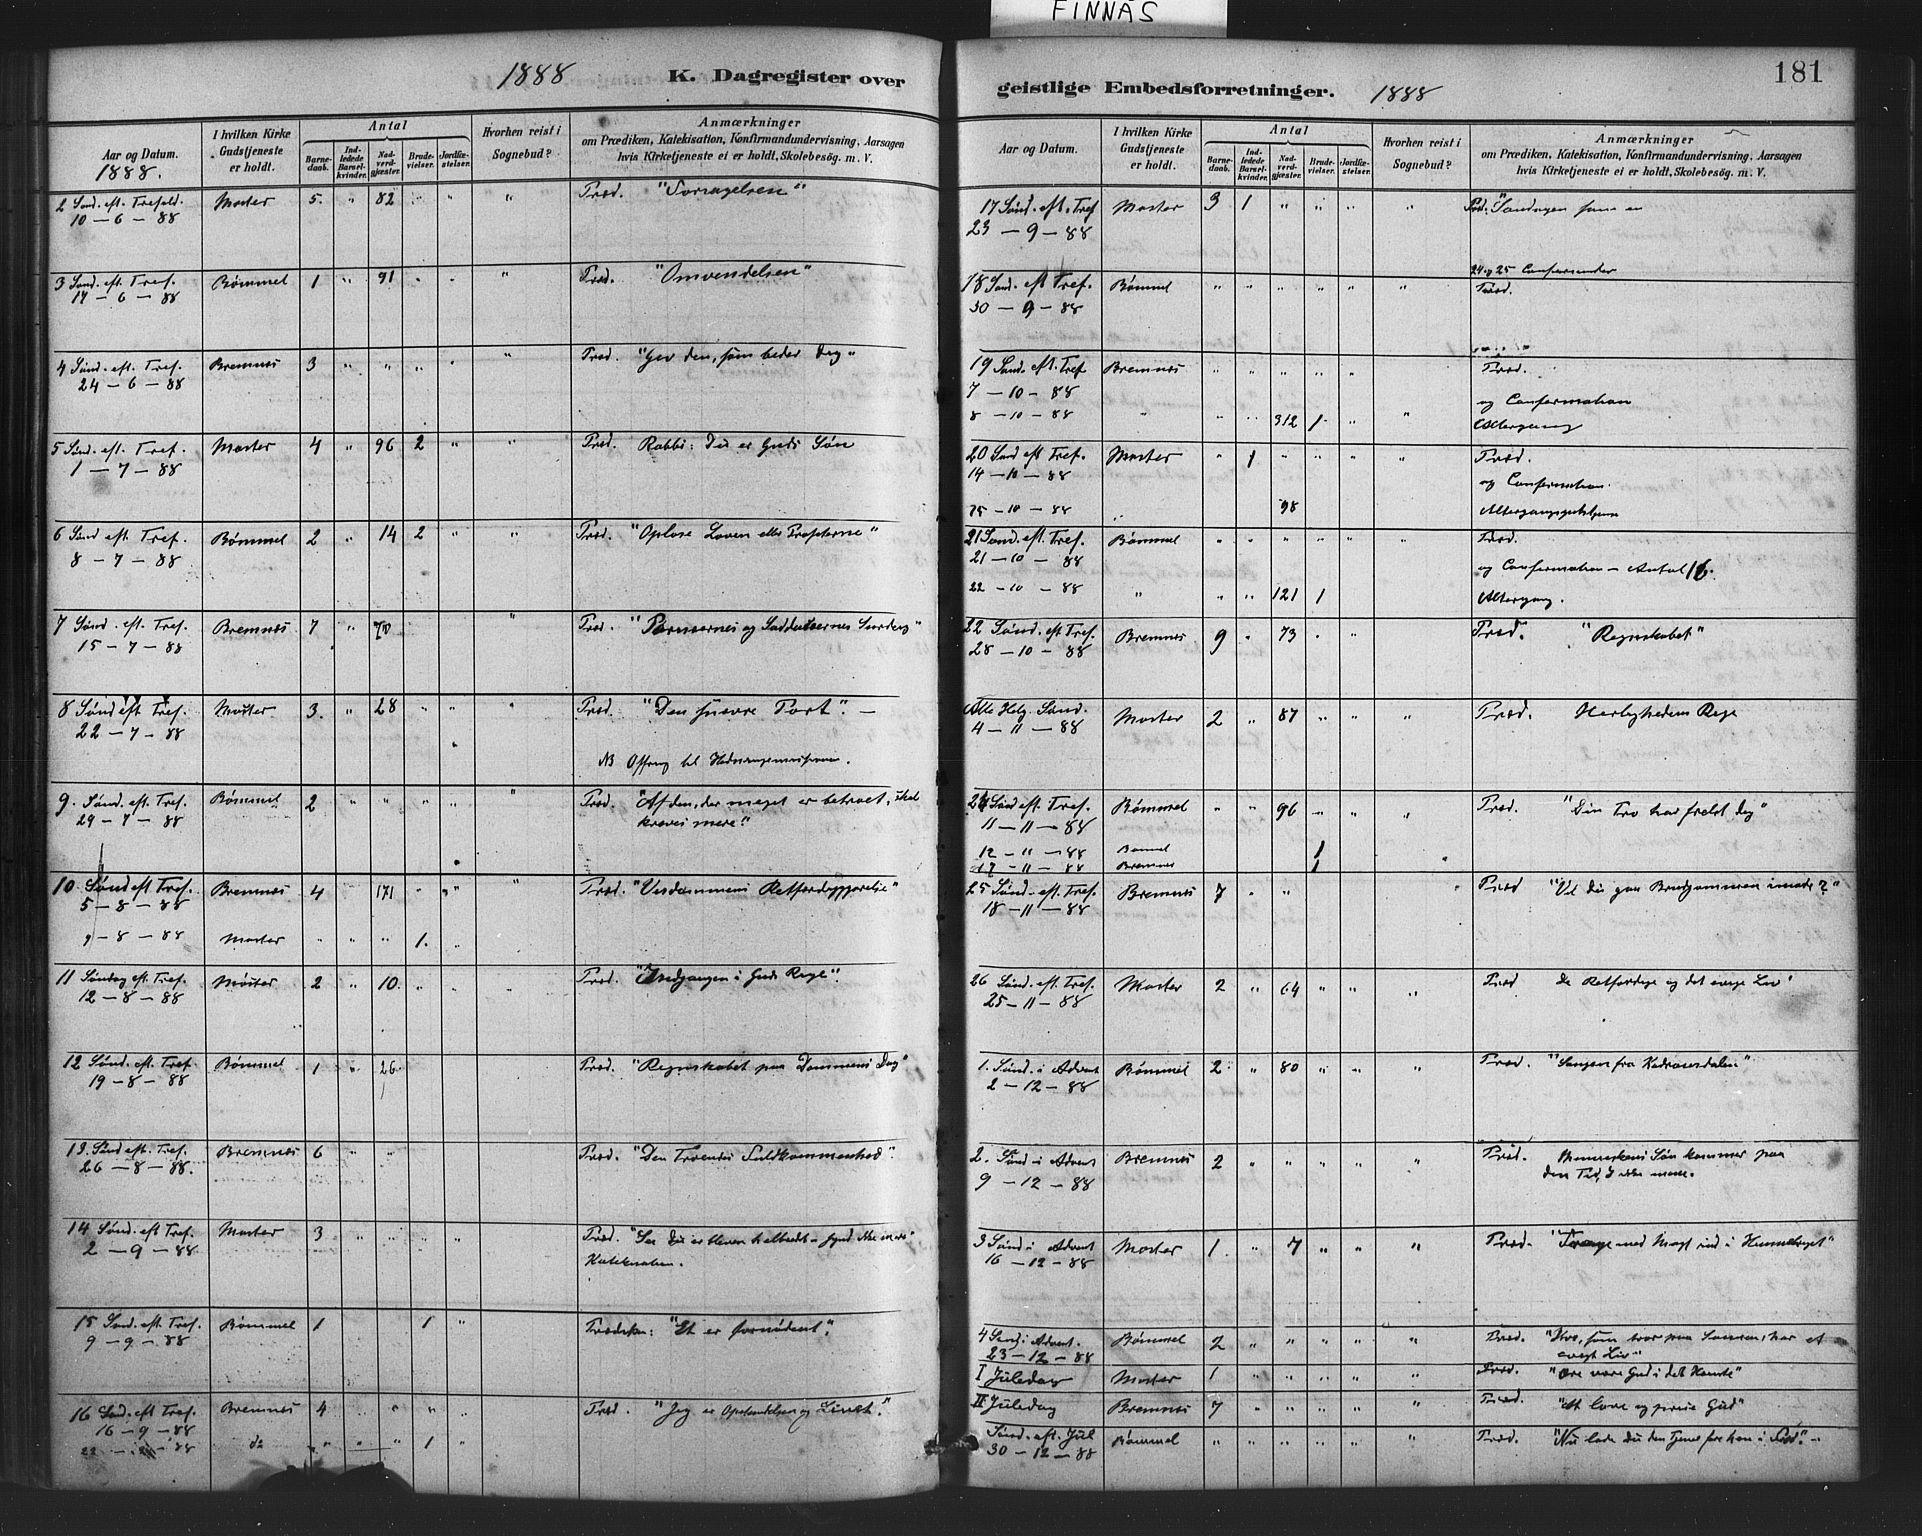 FINNÅS
1888 K. Dagregister over
Aar og Datum. 1888.
I hvilken Kirke Gudstjeneste er holdt.
Antal
Barnedaab.
Indledede Barselkvinder.
Nadverdgjæster.
Brudevielser.
Jordfæstelser.
Hvorhen reist i Sognebud?
Anmærkninger
om Prædiken, Katekisation, Konfirmandundervisning, Aarsagen
hvis Kirketjeneste ei er holdt, Skolebesøg. m. V.
2 Sønd. eft. Trefold. Moster 5. " 82 " " " Præd.
10 – 6 – 88
3 Sønd. eft. Tref. Bømmel 1 " 91 " " " Præd. "Omvendelsen"
17 – 6 – 88
4 Sønd. eft. Tref. Bremnes 3 " " " " " Præd. "Giv den, som beder Dig"
24 – 6 – 88
5 Sønd. eft. Tref. Moster 4 " 96 2 " " Præd. Rabbi: Du er Guds Søn
1 – 7 – 88
6 Sønd eft. Tref. Bømmel 2 " 14 2 " " Præd. "Opløse Loven eller Profeterne"
8 – 7 – 88
7 Sønd. eft. Tref. Bremnes 7 " " Præd.
15 – 7 – 88
8 Sønd eft Tref. Moster 3. " 28 " " " Præd. "Den snevre Port". –
22 – 7 – 88
NB Offring til
9. Sønd. eft. Tref. Bømmel 2 " " " " " Præd. "Af den, der meget er betroet, skal
29 – 7 – 88 kræves mere."
10 Sønd eft Tref. Bremnes 4 " 171 " " " Præd.
5 – 8 – 88
9 – 8 – 88 Moster " " " 1. "
11 Søndag eft. Tref. Moster 2 " 10. " " " Præd. "Indgangen i Guds Rige".
12 – 8 – 88
12 Sønd. eft. Tref. Bømmel 1 " 26. Præd. "Regnskabet paa Dommens Dag"
19 – 8 – 88
13. Sønd eft. Tref. Bremnes 6 Præd. "Den Troendes Fuldkommenhed"
26 – 8 – 88.
14 Sønd. eft Tref. Moster 3 " " " " Præd. "See du er bleven helbredt – synd ikke mere"
2 – 9 – 88
15 Sønd. eft. Tref. Bømmel 1 1 " "Et er fornødent".
9 – 9 – 88
16 Sønd. eft Tref. Bremnes 4 " " " " Præd. "Jeg er Opstandelsen og Livet."
16 – 9 – 88
do " " " 1 "
geistlige Embedsforretninger. 1888
181
Aar og Datum.
I hvilken Kirke Gudstjeneste er holdt.
Antal
Barnedaab.
Indledede Barselkvinder.
Nadverdgjæster.
Brudevielser.
Jordfæstelser.
Hvorhen reist i Sognebud?
Anmærkninger
om Prædiken, Katekisation, Konfirmandundervisning, Aarsagen
hvis Kirketjeneste ei er holdt, Skolebesøg. m. V.
17 Sønd. eft. Tref Moster 3 1 " " " " Præd.
23 – 9 – 88
18 Sønd. eft Tref. Bømmel " " " " " " Præd.
30 – 9 – 88
19 Sønd. eft. Tref Bremnes " " " " " Præd.
7 – 10 – 88 og Confirmation
8 – 10 – 88 " " " 312 1 " " Altergang
20 Sønd eft Tref. Moster " 1 " " " " Præd.
14 – 10 – 88 og Confirmation.
15 – 10 – 88 98
21 Sønd. eft. Tref. Bømmel " " " " " " Præd.
21 – 10 – 88 og Confirmation – Antal 16.
22 – 10 – 88 " " " 121 1 Altergang.
22 Sønd. eft. Tref. Bremnes 9 " 73 " " Præd. "Regnskabet"
28 – 10 – 88
Alle Helg. Sønd. Moster 2 " 87 " " " Præd. Herlighedens Rige
4 – 11 – 88
24 Sønd eft. Tref. Bømmel " " 96 " " " Præd. "Din Tro har frelst dig"
11 – 11 – 88
12 – 11 – 88 Bømmel 1
17 – 11 – 88 Bremnes 1
25 Sønd. eft. Tref. Bremnes 7 " " " Præd "Vil Du gaa Brudgommen imøde?"
18 – 11 – 88
26 Sønd. eft. Tref. Moster 2 " 64 " " " Præd De Retfærdige og det evige Liv"
25 – 11 – 88
1. Sønd. i Advent Bømmel 2 " 80 " " " Præd. "Sangen fra
2 – 12 – 88
2. Sønd i Advent Bremnes 2 " " " " " Præd. Menneskens Søn kommer paa
9 – 12 – 88 den Tid, I ikke mene.
3 Sønd i Advent Moster 1. " 7 " " " Præd. med Magt ind i Himmeriget"
16 – 12 – 88
4 Sønd i Advent. Bømmel 2 " " " " " Præd. "Hvo, som tror paa Sønnen, har et
23 – 12 – 88 evigt Liv"
I Juledag Moster 1 " " " " " Præd. "Ære være Gud i det Høieste"
II Juledag Bremnes 7 " " " " " Præd. "At love og prise Gud"
Sønd. eft. Jul Bømmel " " " " " " Præd. "Nu lader du din Tjener fare hen i Fred." –
30 – 12 – 88